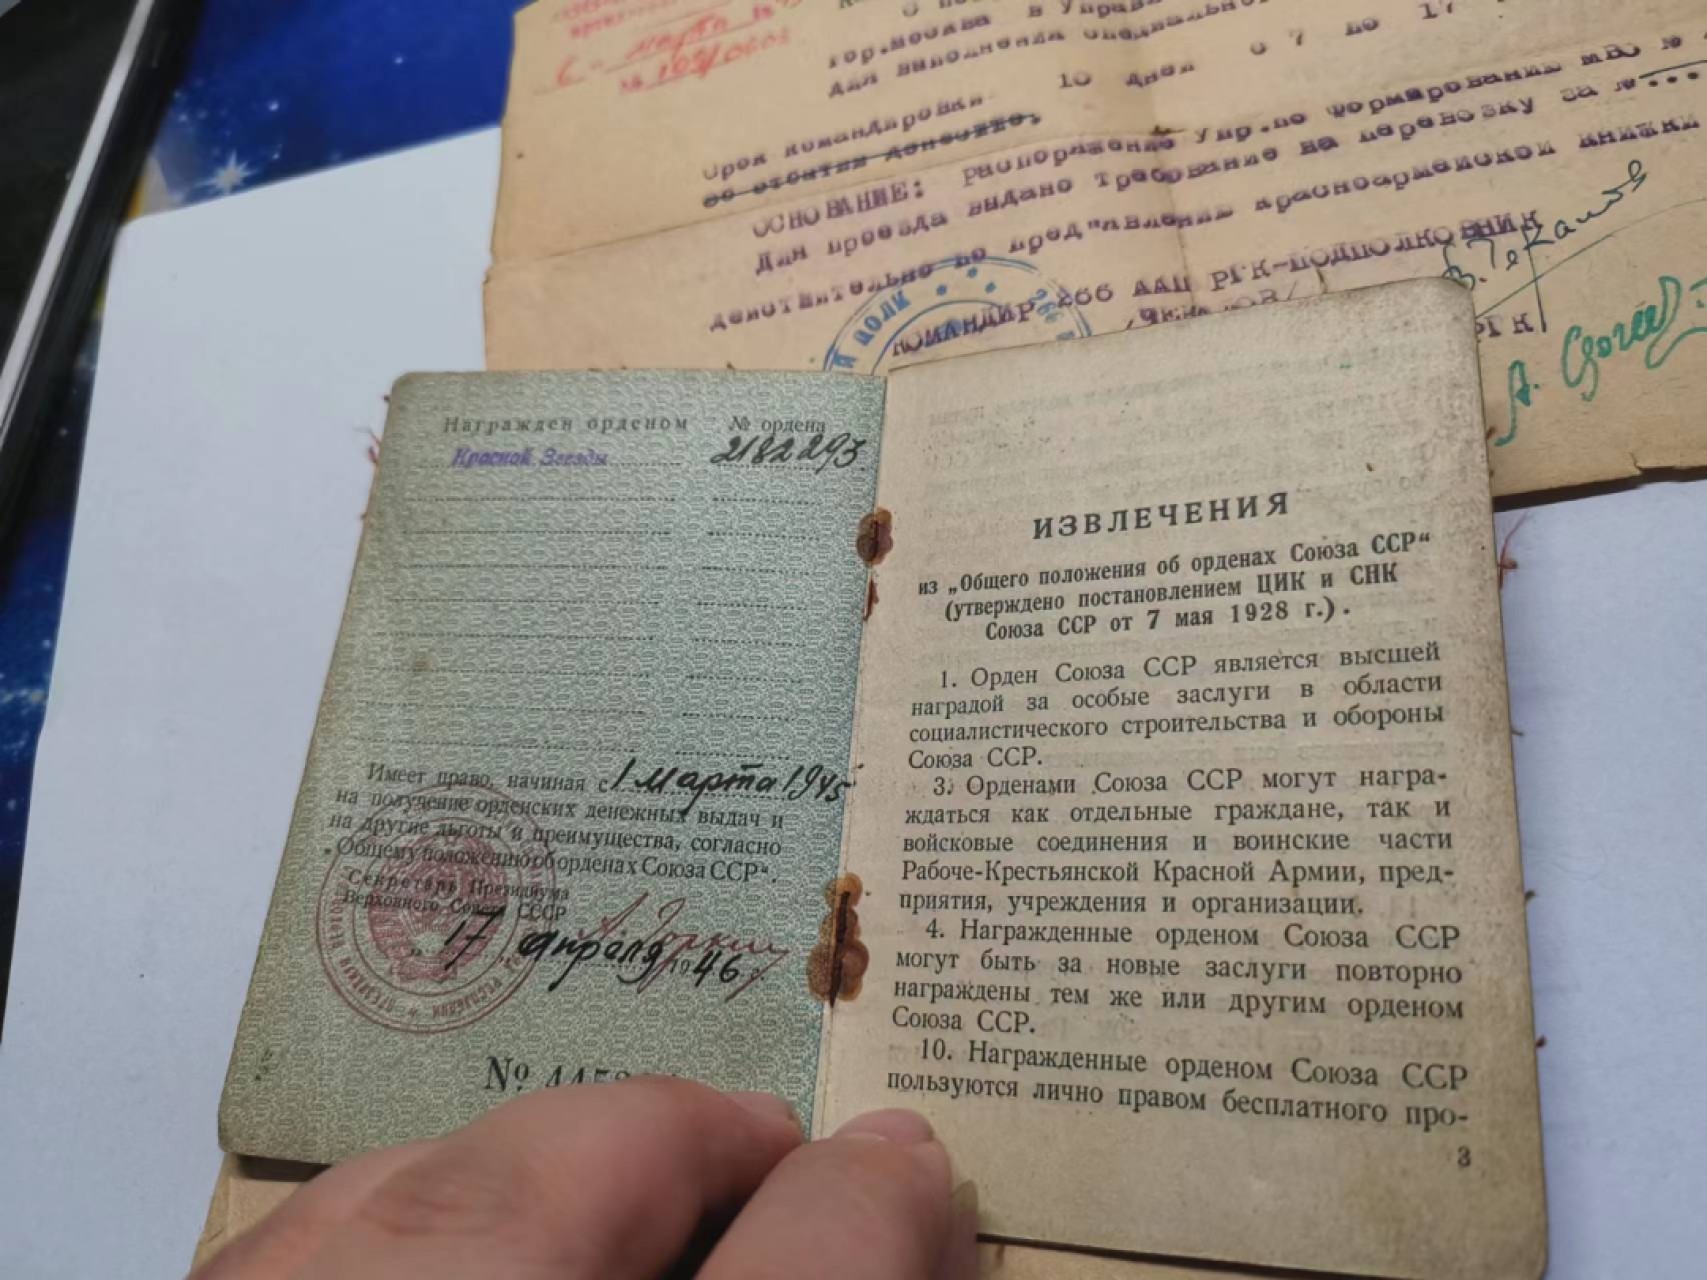 марта
гор.Москва в Управ
для выполнения специально
Срок командировки 10 дней с 7 по 17
ОСНОВАНИЕ: Распоряжение Упр.по Формированию МВО №
Для проезда выдано требование на перевозку за №...
Действительно по пред"явлении красноармейской книжки
КОМАНДИР 266 ААП РГК-ПОДПОЛКОВНИК
Й ПОЛК
266
РГК
Награжден орденом № ордена
Красной Звезды 2182293
Имеет право, начиная с 1 марта 1945
на получение орденских денежных выдач и
на другие льготы и преимущества, согласно
„Общему положению об орденах Союза ССР“.
Секретарь Президиума
Верховного Совета СССР
А. Горкин
„17„ апреля 1946 г.
№
ИЗВЛЕЧЕНИЯ
из „Общего положения об орденах Союза ССР“
(утверждено постановлением ЦИК и СНК
Союза ССР от 7 мая 1928 г.).
1. Орден Союза ССР является высшей
наградой за особые заслуги в области
социалистического строительства и обороны
Союза ССР.
3. Орденами Союза ССР могут награ-
ждаться как отдельные граждане, так и
войсковые соединения и воинские части
Рабоче-Крестьянской Красной Армии, пред-
приятия, учреждения и организации.
4. Награжденные орденом Союза ССР
могут быть за новые заслуги повторно
награждены тем же или другим орденом
Союза ССР.
10. Награжденные орденом Союза ССР
пользуются лично правом бесплатного про-
3